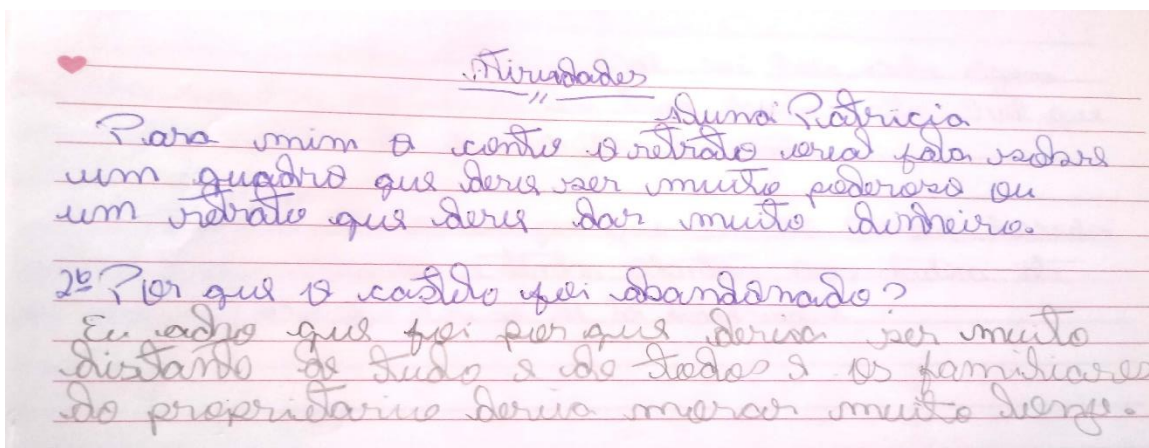 Atividades
Aluna: Patricia
Para mim o conto o retrato oval fala sobre
um quadro que deve ser muito poderoso ou
um retrato que deve dar muito dinheiro.
2º Por que o castelo foi abandonado?
Eu acho que foi por que devia ser muito
distante de tudo e de todos e os familiares
do proprietario devia morar muito longe.